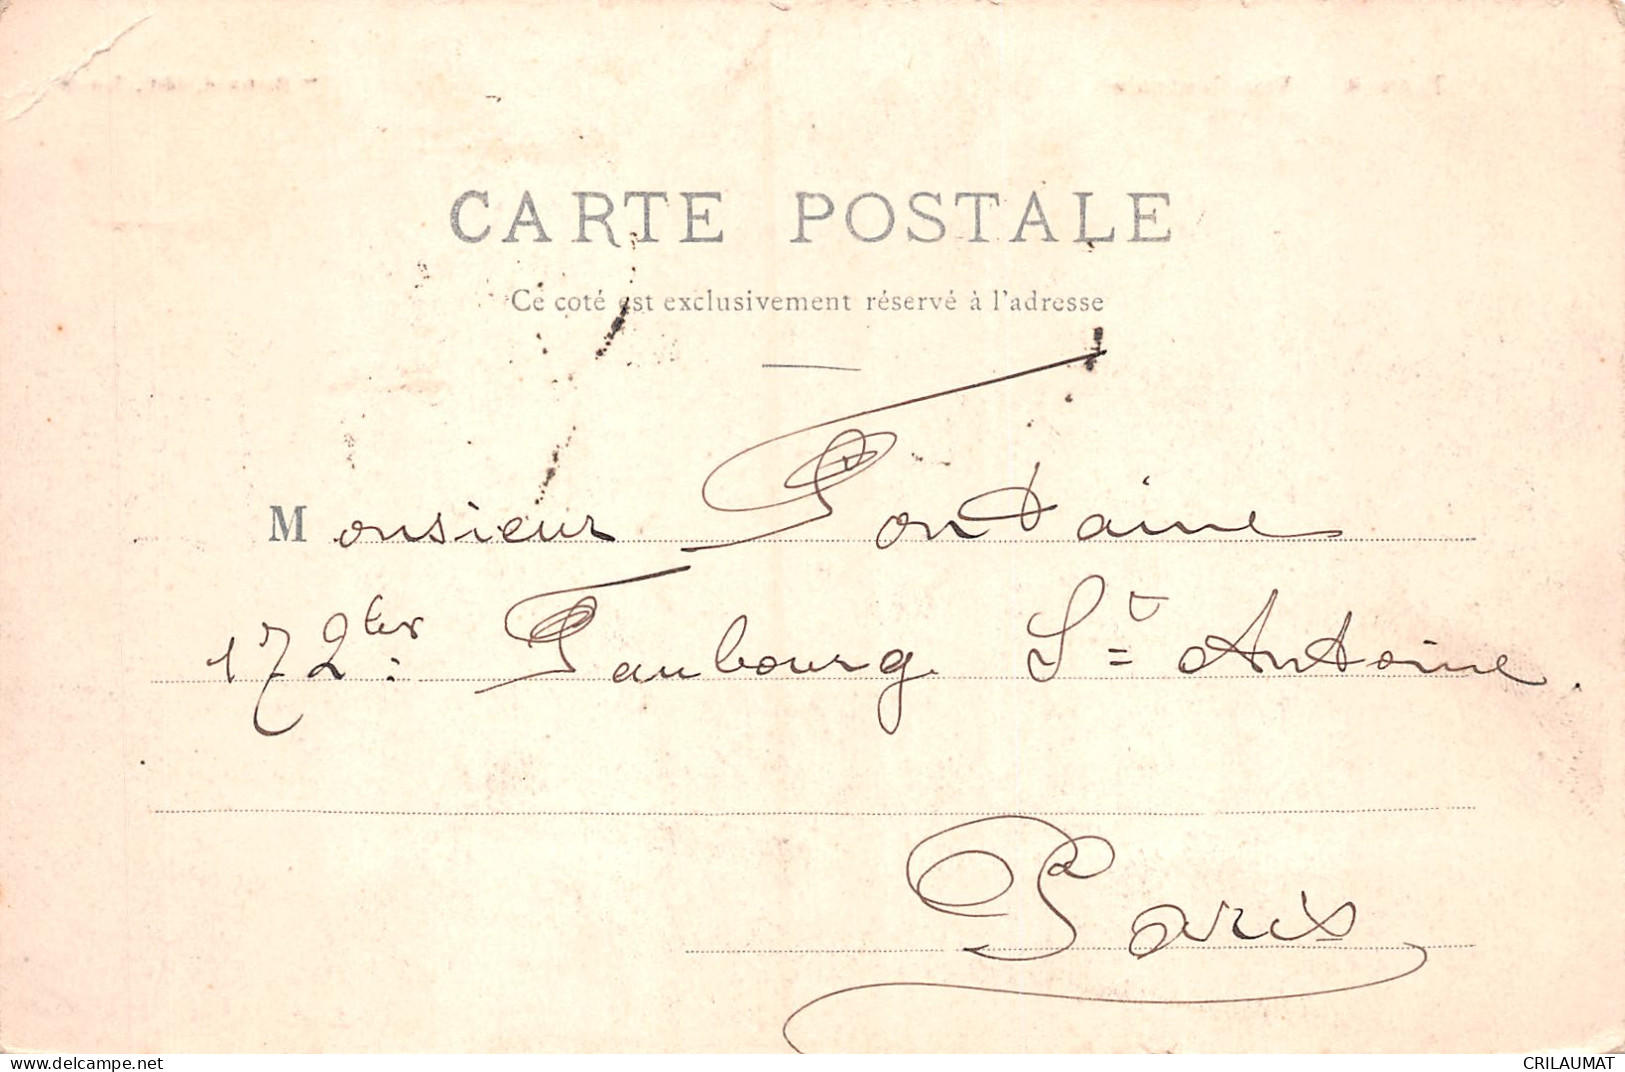 CARTE POSTALE
Ce coté est exclusivement réservé à l'adresse
Monsieur Fontaine
172 ter: Faubourg St Antoine.
Paris
delcampe.net
CRILAUMAT